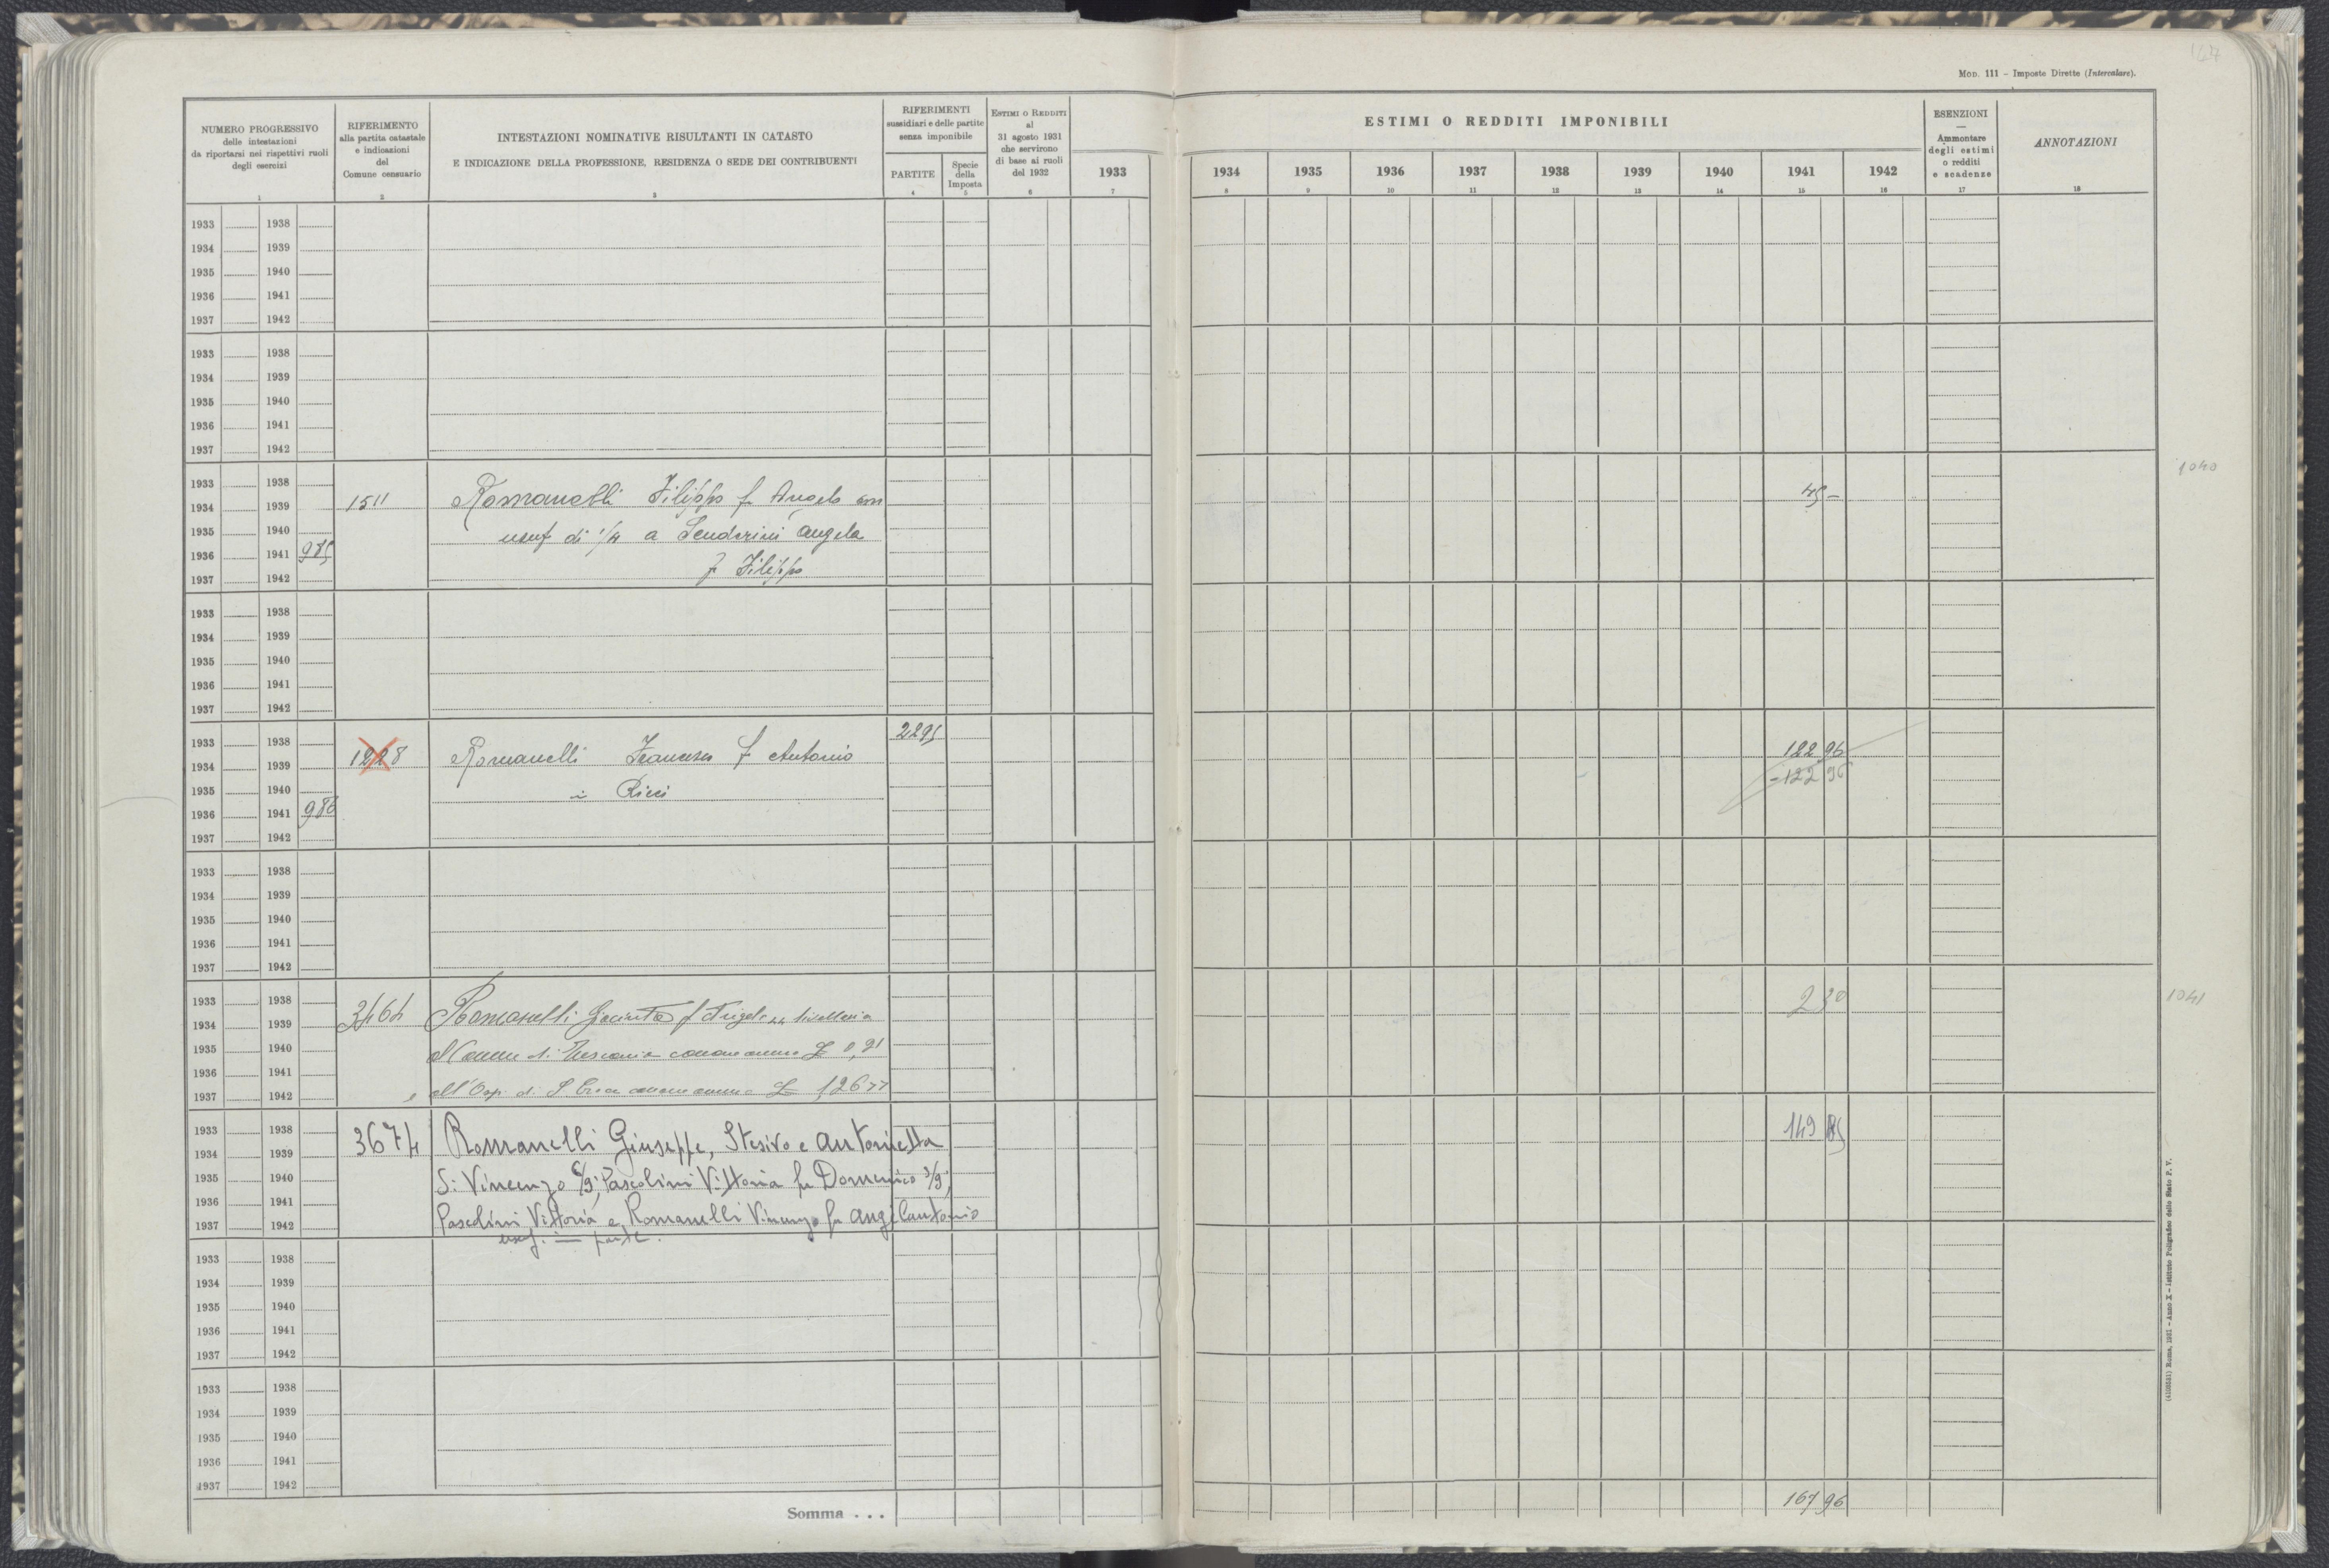 127
MOD. 111 - Imposte Dirette (Intercalare).
NUMERO PROGRESSIVO
delle intestazioni
da riportarsi nei rispettivi ruoli
degli esercizi
1
RIFERIMENTO
alla partita catastale
e indicazioni
del
Comune censuario
2
INTESTAZIONI NOMINATIVE RISULTANTI IN CATASTO
E INDICAZIONE DELLA PROFESSIONE, RESIDENZA O SEDE DEI CONTRIBUENTI
3
RIFERIMENTI
sussidiari e delle partite
senza imponibile
PARTITE
4
Specie
della
Imposta
5
ESTIMI O REDDITI
al
31 agosto 1931
che servirono
di base ai ruoli
del 1932
6
1933
7
ESTIMI O REDDITI IMPONIBILI
1934 1935 1936 1937 1938 1939 1940 1941 1942
8 9 10 11 12 13 14 15 16
ESENZIONI
—
Ammontare
degli estimi
o redditi
e scadenze
17
ANNOTAZIONI
18
1933 1938
1934 1939
1935 1940
1936 1941
1937 1942
1933 1938
1934 1939
1935 1940
1936 1941
1937 1942
1040
1933 1938
1934 1939 1511 Romanelli Filippo f Angelo con 45 -
1935 1940 usuf di 1/4 a Senderini Angela
1936 1941 985
1937 1942 f Filippo
1933 1938
1934 1939
1935 1940
1936 1941
1937 1942
1933 1938 2295
1934 1939 1228 Romanelli Francesca f Antonio 122 96
1935 1940 in Ricci -122 96
1936 1941 986
1937 1942
1933 1938
1934 1939
1935 1940
1936 1941
1937 1942
1041
1933 1938
1934 1939 3464 Romanelli Giacinta f livellaria 230
1935 1940 al Comune di Tuscania canone annuo £ 0,91
1936 1941
1937 1942 e all'Osp. di S. Croce canone annuo £ 126
1933 1938 149 85
1934 1939 3674 Romanelli Giuseppe, Stesivo e Antonietta
1935 1940 di Vincenzo 6/9; Pascolini Vittoria fu Domenico 3/9;
1936 1941
1937 1942 Pascolini Vittoria e Romanelli Vincenzo fu Angelantonio
usuf. in parte.
1933 1938
1934 1939
1935 1940
1936 1941
1937 1942
1933 1938
1934 1939
1935 1940
1936 1941
1937 1942
Somma . . . 167 96
Roma, 1931 - Anno X - Istituto Poligrafico dello Stato P. V.